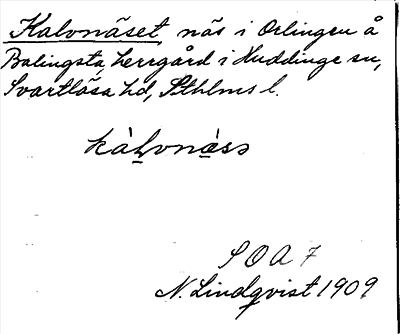 Kalvnäset, näs i Orlingen å
Balingsta, herrgård i Huddinge sn,
Svartlösa hd, Sthlms l.
kàlvnä̀sə
S O A 7
N. Lindqvist 1909